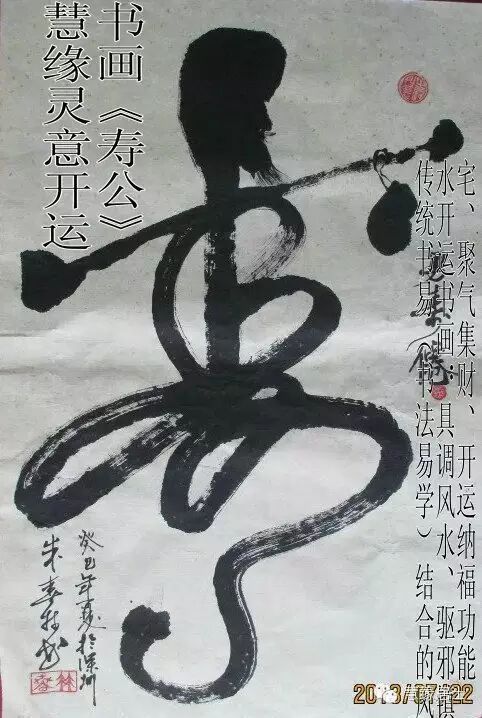 慧缘灵意开运
书画《寿公》
传统书易（书法易学）结合的风
水开运书画；具调风水、驱邪镇
宅、聚气集财、开运纳福功能
寿
癸巳年夏於深圳
2013/07/22